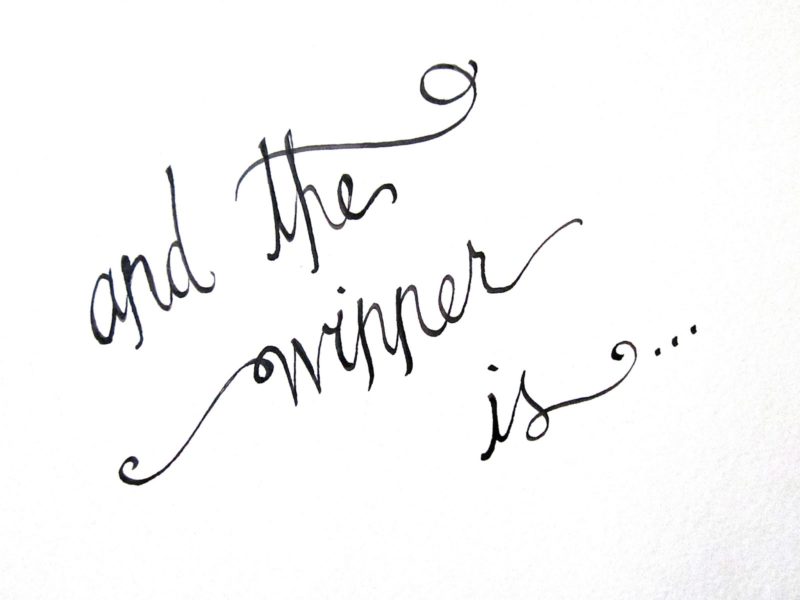 and the
winner
is...